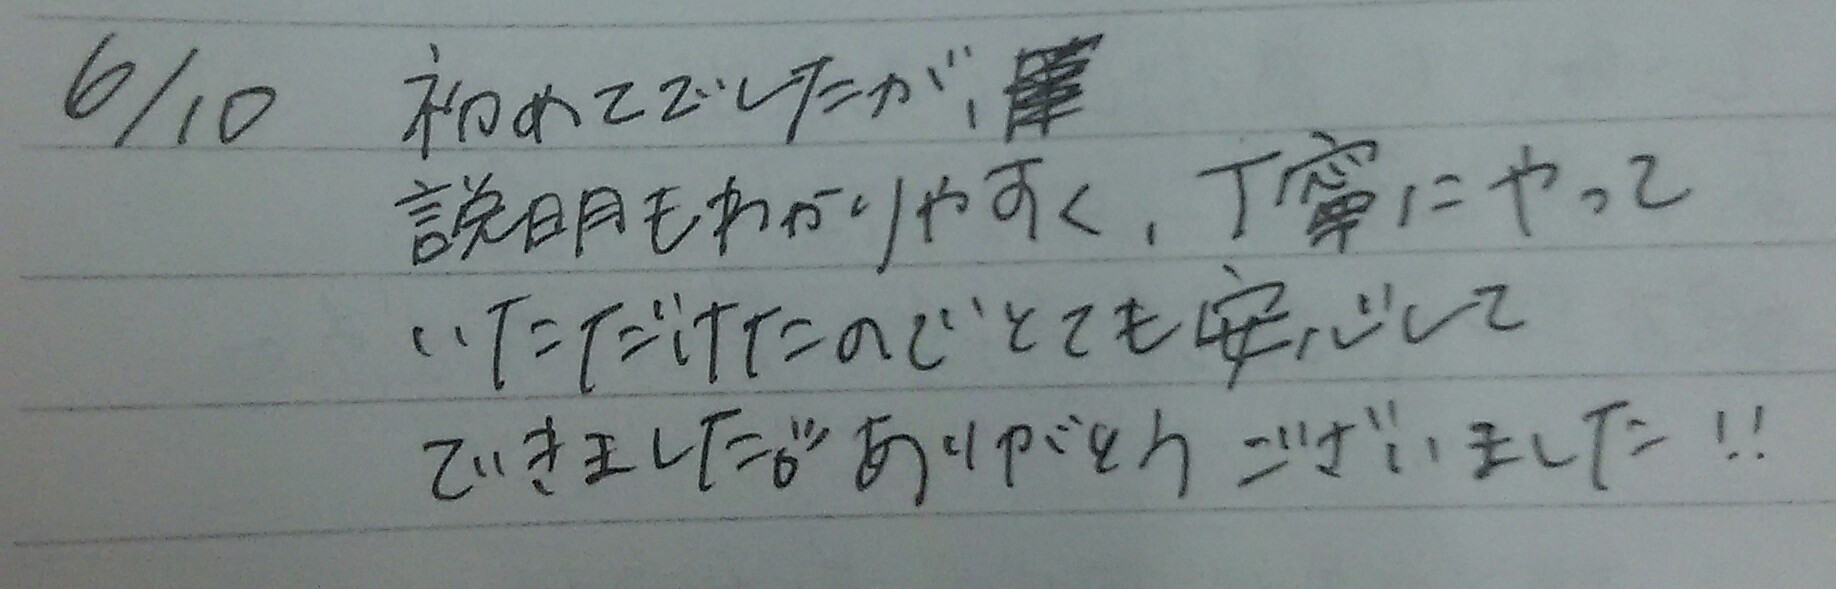 6/10 初めてでしたが、
説明もわかりやすく、丁寧にやって
いただけたのでとても安心して
できました。ありがとうございました!!